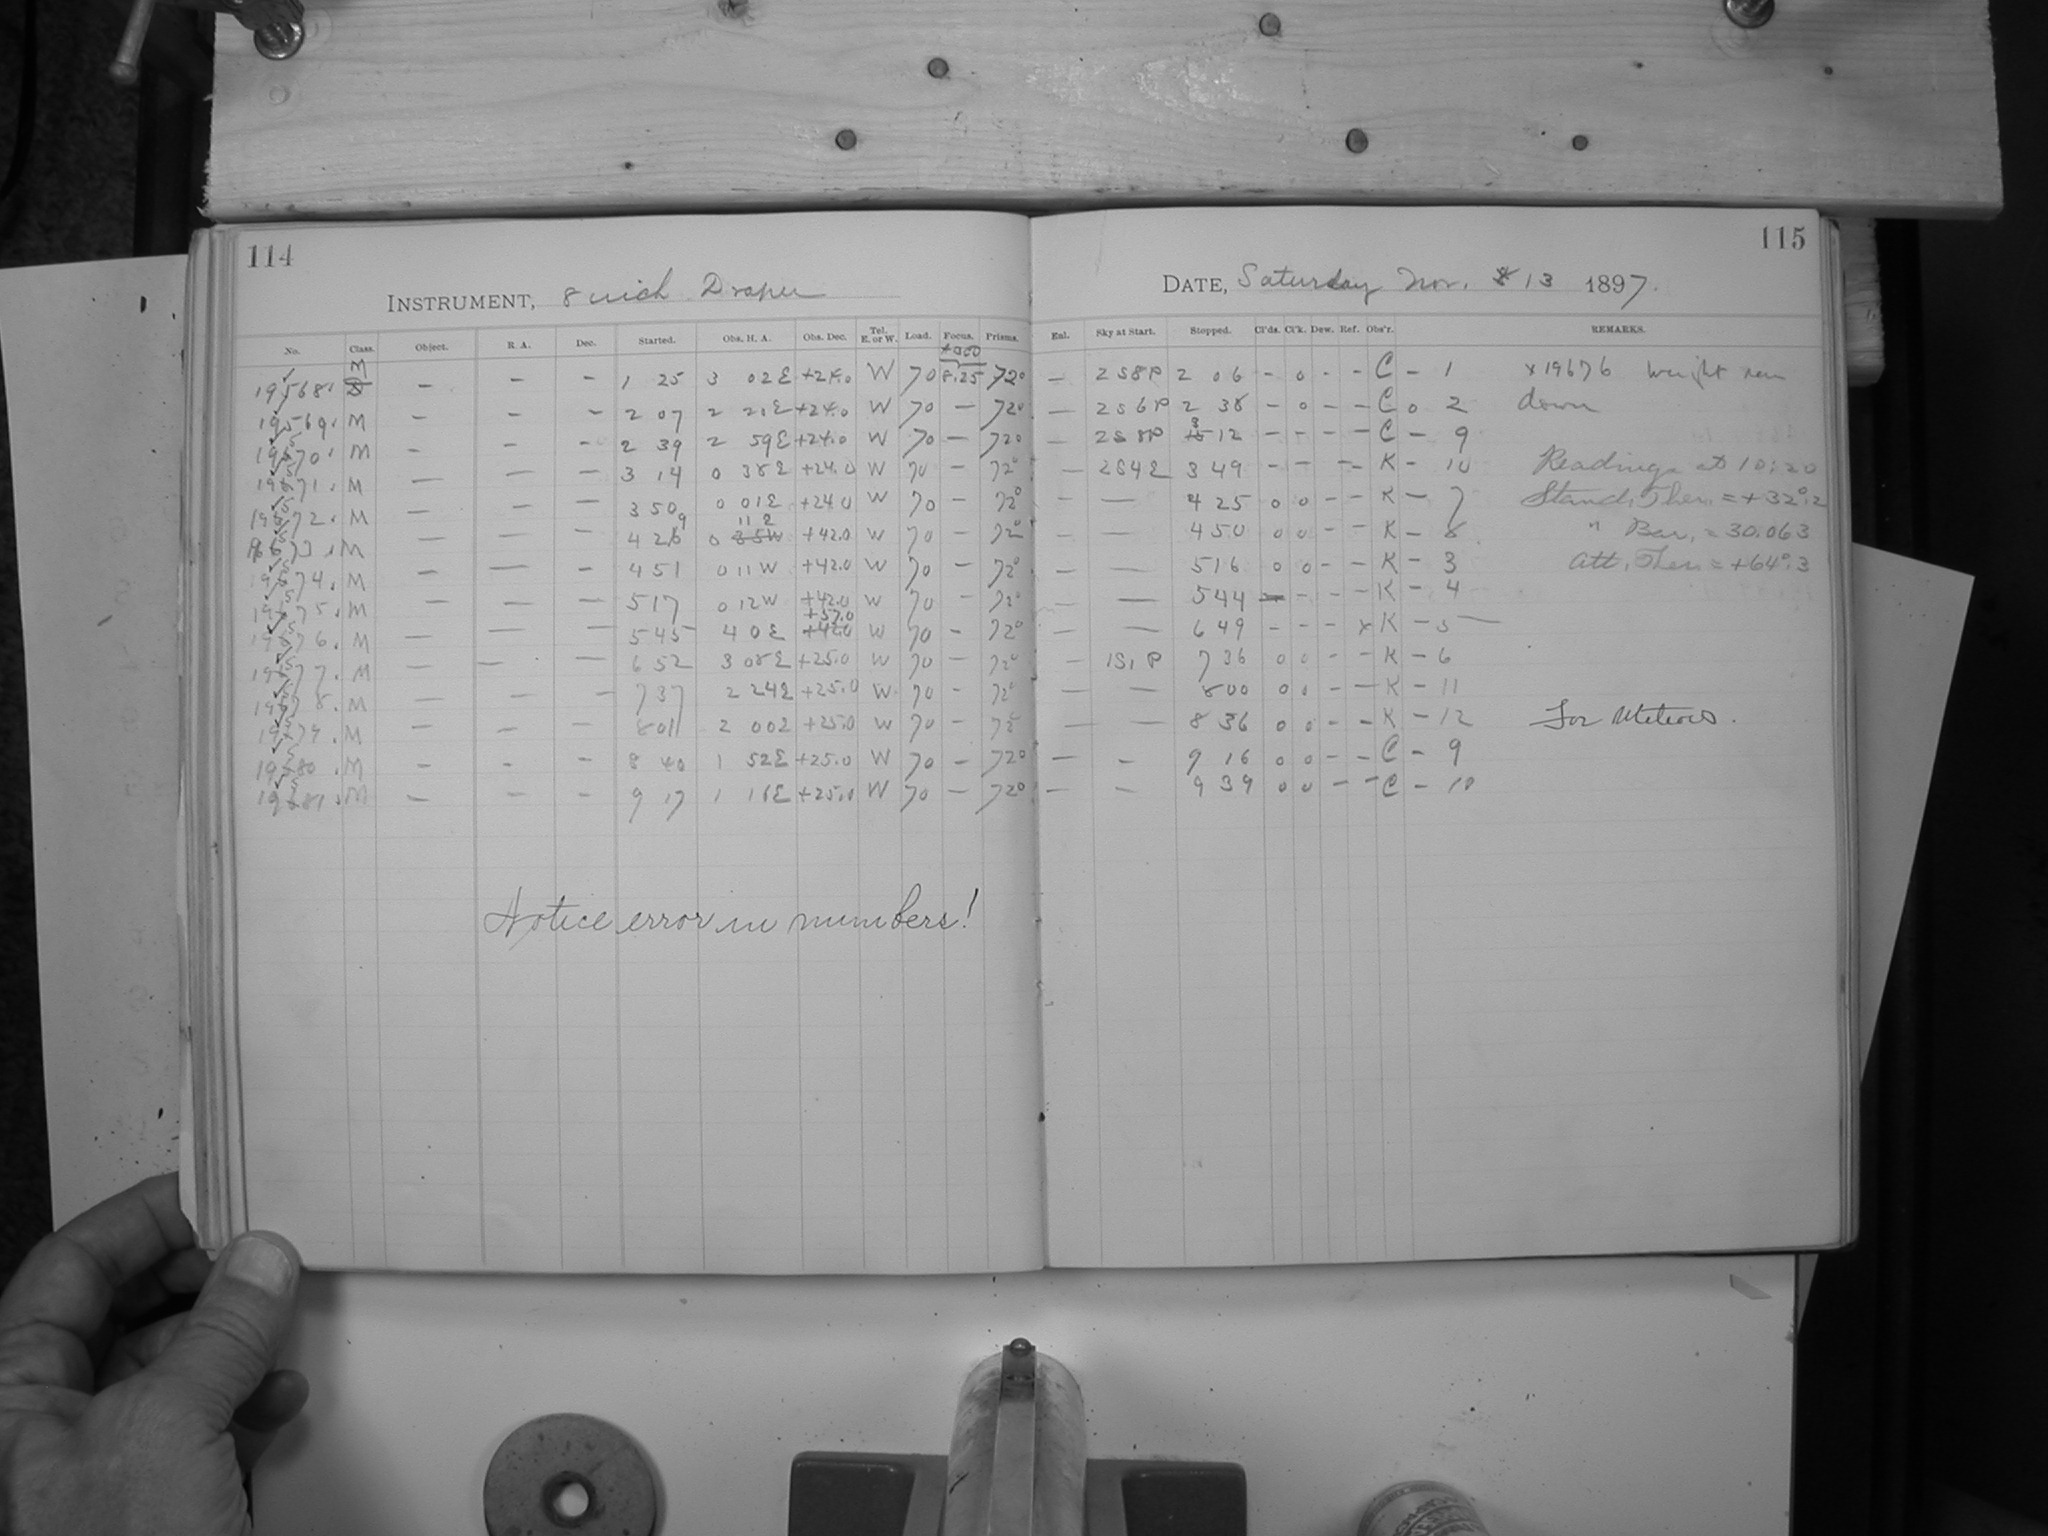 114
INSTRUMENT, 8 inch Draper
No. Class. Object. R. A. Dec. Started. Obs. H. A. Obs. Dec. Tel. E. or W. Load. Focus. Prisms.
19568 M — — — 1 25 3 02 E +24.0 W 70 8.25 720
19569 M — — — 2 07 2 +24.0 W 70 — 720
19570 M — — — 2 39 2 59 E +24.0 W 70 — 720
19571 M — — — 3 14 0 38 E +24.0 W 70 — 720
19572 M — — — 3 50 0 01 E +24.0 W 70 — 720
19573 M — — — 4 26 0 +42.0 W 70 — 720
19574 M — — — 4 51 0 11 W +42.0 W 70 — 720
19575 M — — — 5 17 0 12 W +42.0 W 70 — 720
19576 M — — — 5 45 4 0 E +57.0 W 70 — 720
19577 M — — — 6 52 3 08 E +25.0 W 70 — 720
19578 M — — — 7 37 2 24 E +25.0 W 70 — 720
19579 M — — — 8 01 2 00 E +25.0 W 70 — 720
19580 M — — — 8 40 1 52 E +25.0 W 70 — 720
19581 M — — — 9 17 1 16 E +25.0 W 70 — 720
Notice error in numbers!
115
DATE, Saturday Nov. 13 1897.
Enl. Sky at Start. Stopped. Cl'ds. Cl'k. Dew. Ref. Obs'r. REMARKS.
— 2S8P 2 06 - 0 - - C - 1 x 19676 Weight ran
— 2S6P 2 38 - 0 - - C 0 2 down
— 2S8P 3 12 - - - - C - 9
— 2S4E 3 49 - - - - K - 10 Readings at 10:20
— — 4 25 0 0 - - K - 7 Stand. Ther. = +32°.2
— — 4 50 0 0 - - K - 8 " Bar. = 30.063
— — 5 16 0 0 - - K - 3 Att. Ther. = +64°.3
— — 5 44 - - - - K - 4
— — 6 49 - - - x K - 5
— 1S1P 7 36 0 0 - - K - 6
— — 8 00 0 0 - - K - 11
— — 8 36 0 0 - - K - 12 For Meteors.
— — 9 16 0 0 - - C - 9
— — 9 39 0 0 - - C - 10